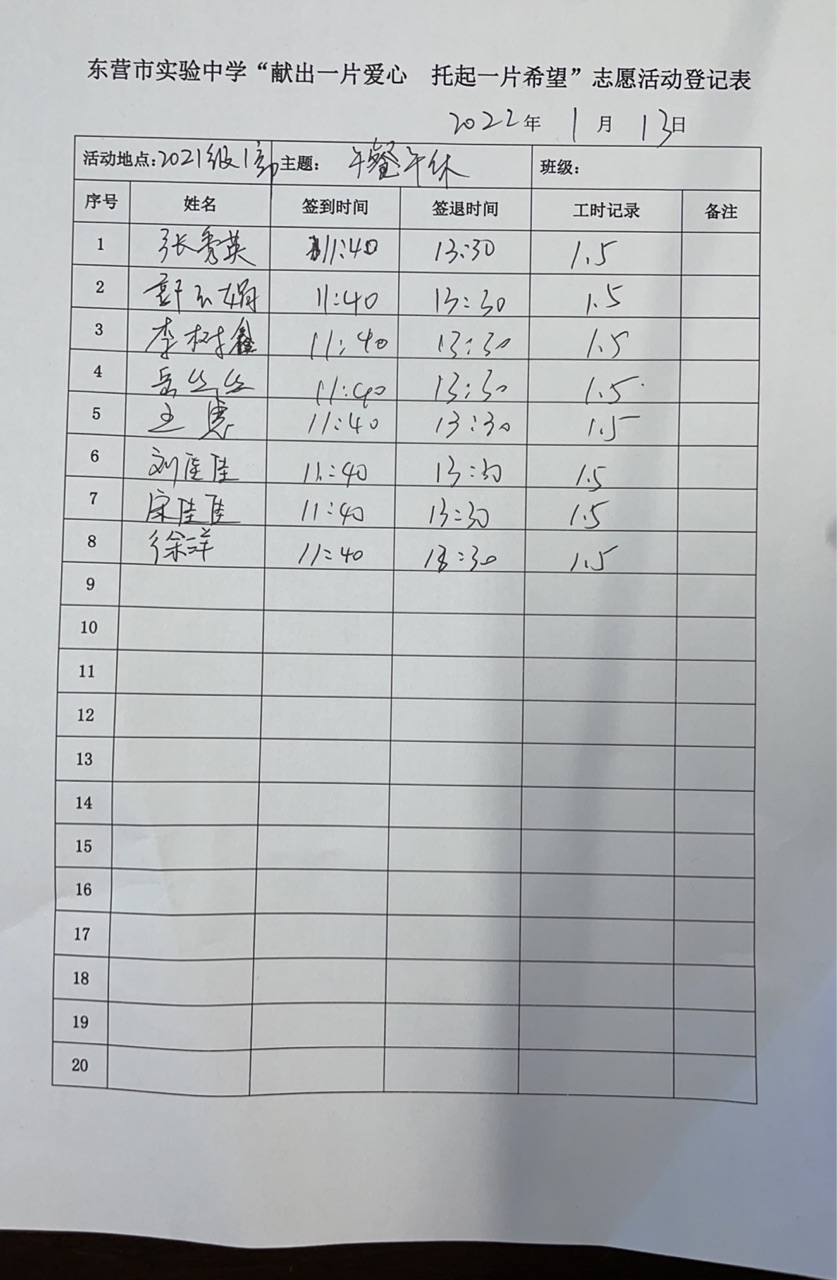 东营市实验中学“献出一片爱心 托起一片希望”志愿活动登记表
2022年 1月 13日
活动地点:2021级1部 主题: 午餐午休 班级:
序号 姓名 签到时间 签退时间 工时记录 备注
1 张秀英 11:40 13:30 1.5
2 11:40 13:30 1.5
3 李树鑫 11:40 13:30 1.5
4 岳丝丝 11:40 13:30 1.5
5 王 11:40 13:30 1.5
6 刘佳佳 11:40 13:30 1.5
7 宋佳佳 11:40 13:30 1.5
8 徐洋 11:40 13:30 1.5
9
10
11
12
13
14
15
16
17
18
19
20